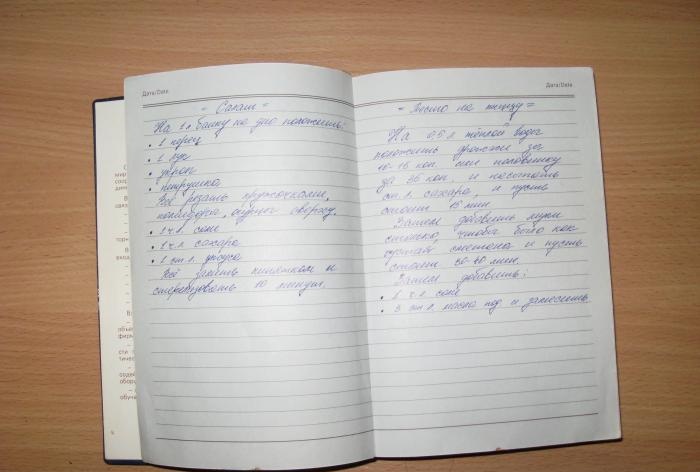 Дата/Date
= Салат =
На 1 л банку на дно положить:
• 1 перец
• 1 лук
• укроп
• петрушка
Всё резать кружочками,
помидоры, огурец сверху.
• 1 ч.л. соли
• 1 ч.л. сахара
• 1 ст.л. уксуса
Всё залить кипятком и
стерилизовать 10 минут.
Дата/Date
= Тесто на пиццу =
На 0,5 л тёплой воды
положить дрожжи за
16 коп. или половинку
за 36 коп., и
ст.л. сахара, и пусть
стоит 15 мин
Затем добавить муки
столько, чтобы было как
густая сметана и пусть
стоит мин.
Затем добавить:
• 1 ч.л. соли
• 3 ст.л. масла под и замесить